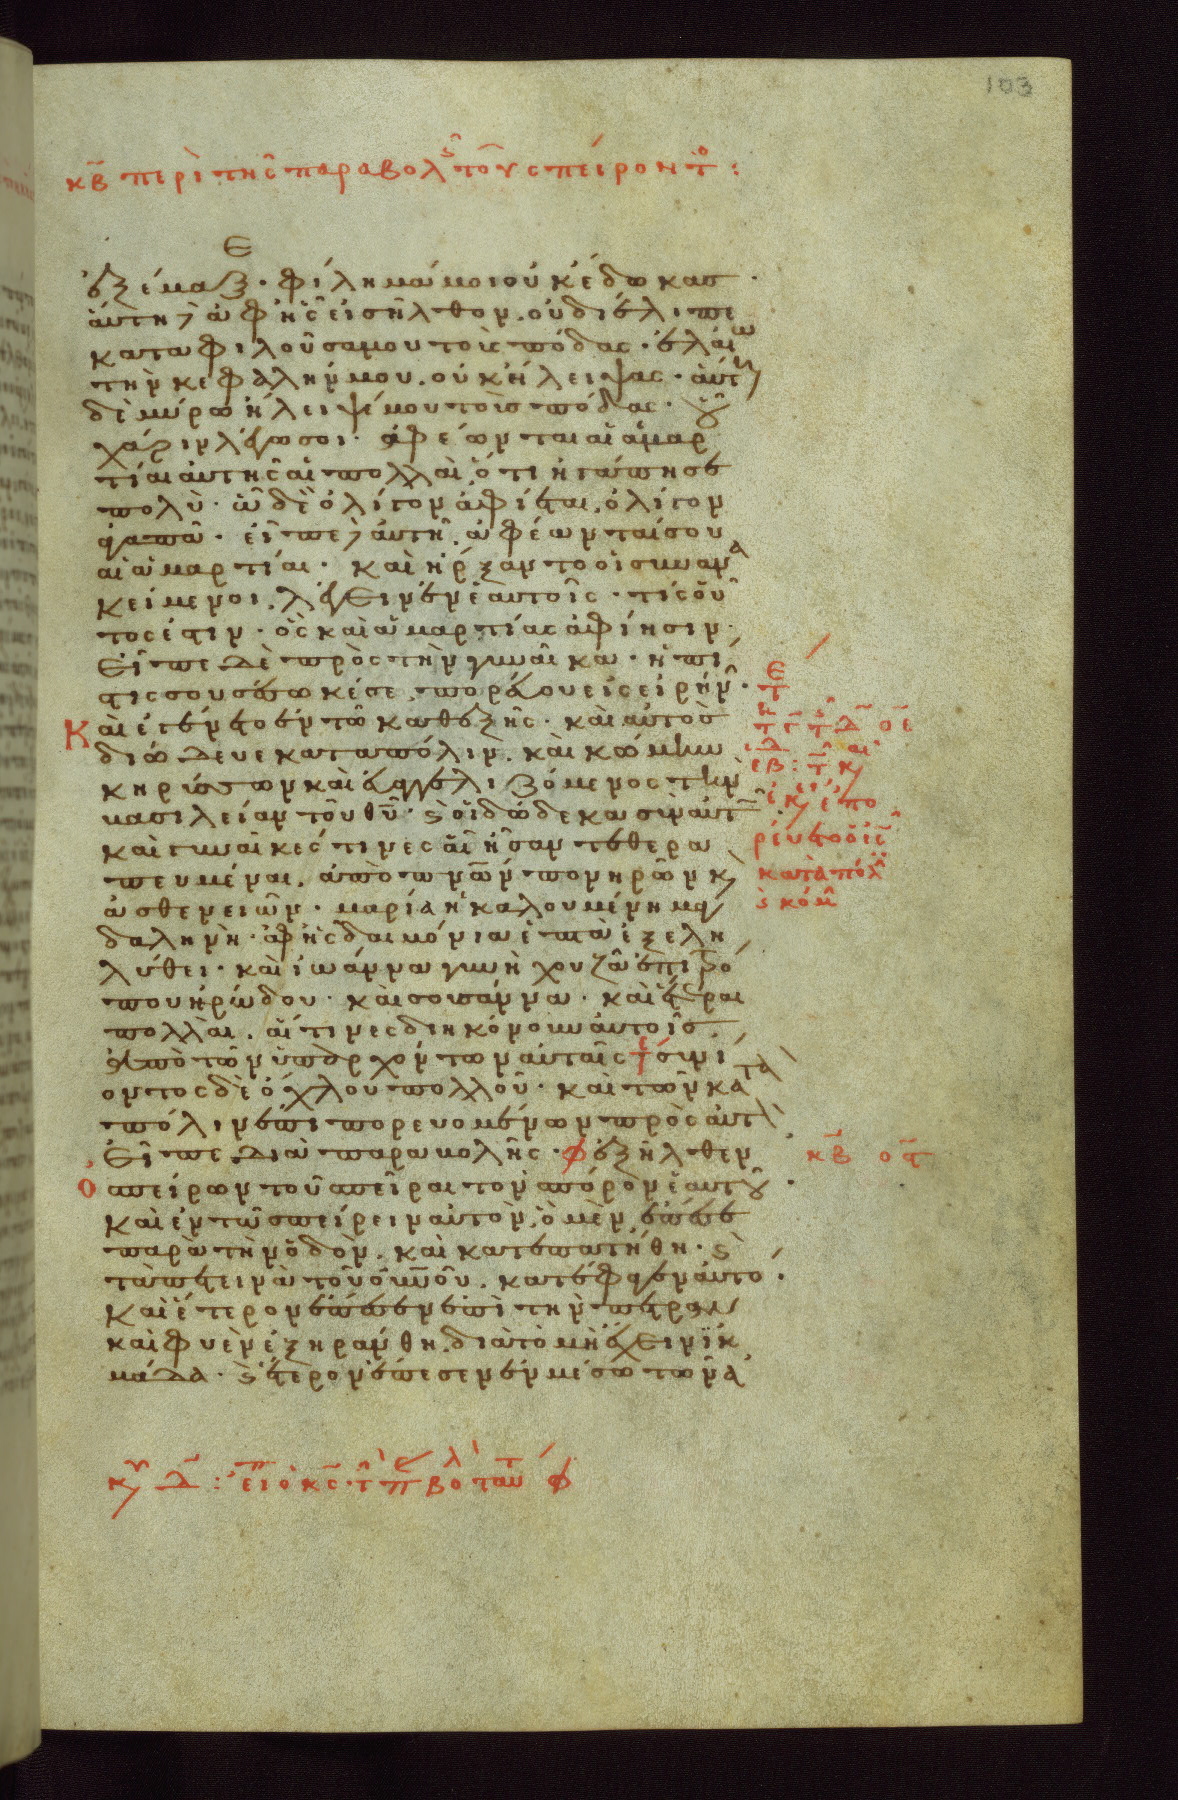 103
κβ περὶ τῆς παραβολ τοῦ σπείροντο :
ἐξέμαξε · φίλημά μοι οὐκ έδωκας ·
ἀύτη ἀφ ῆς εἰσῆλθον . οὐ διέλιπε
καταφιλοῦσα μου τοὺς πόδας · ἐλαίω
τὴν κεφαλήν μου . οὐκ ήλειψας · ἁύτη
δὲ μύρω ήλειψέ μου τοὺς πόδας · οὗ
χάριν λέγω σοι · ἀφέωνται αἱ ἁμαρ
τίαι ἀυτῆς αἱ πολλαὶ . ὅτι ἠγάπησε
πολὺ · ὧ δὲ ὀλίγον ἀφίεται . ὀλίγον
ἀγαπᾶ · εἶπε ἀυτῆ . ἀφέωνται σου
αἱ ἁμαρτίαι · καὶ ήρξαντο οἱ συνανα
κείμενοι . λέγειν ἐν ἑαυτοῖς · τίς οὗ
τος ἐστιν · ὃς καὶ ἁμαρτίας ἀφίησιν ·
Εἶπε δὲ πρὸς τὴν γυναῖκα · ἡ πί
στις σου σέσωκέ σε . πορέυου εἰς εἰρήν ·
Καὶ ἐγένετο ἐν τῶ καθεξῆς · καὶ ἀυτὸς
διώδευε κατα πόλιν . καὶ κώμην
κηρύσσων καὶ ἐυαγγελιζόμενος τὴν
βασιλείαν τοῦ θῦ · ϛ οἱ δώδεκα σὺν ἀυτῶ ·
καὶ γυναῖκές τινες αἳ ῆσαν τεθερα
πευμέναι . ἀπὸ πνῶν πονηρῶν κ
ἀσθενειῶν · μαρία ἡ καλουμένη μαγ
δαληνὴ · ἀφ ῆς δαιμόνια ἑπτὰ ἐξελη
λύθει · καὶ ἰωάννα γυνὴ χουζᾶ ἐπιτρό
που ἡρώδου · καὶ σουσάννα · καὶ ἕτεραι
πολλαὶ . αἵτινες διηκόνουν ἀυτοῖς
ἀπὸ τῶν ὑπαρχόντων ἀυταῖς συνι
οντος δὲ όχλου πολλοῦ · καὶ τῶν κατα
πόλιν ἐπιπορευομένων πρὸς ἀυτ
Εἶπε διὰ παραβολῆς · ἐξῆλθεν
Ὁ σπείρων τοῦ σπεῖραι τὸν σπόρον ἑαυτοῦ ·
καὶ ἐν τῶ σπείρειν αὐτὸν . ὁ μὲν έπεσε
παρὰ τὴν ὁδὸν . καὶ κατεπατήθη · ϛ
τὰ πετεινὰ τοῦ οὐνοῦ . κατέφαγεν ἀυτό ·
καὶ ἕτερον έπεσεν ἐπὶ τὴν πέτραν
καὶ φυὲν ἐξηράνθη . διὰ τὸ μὴ έχειν ἰκ
μάδα · ϛ ἕτερον έπεσεν ἐν μέσω τῶν ἀ
ρέυετο ὁ ις
κατὰ πόλ
ϛ κώμ
κβ οϛ